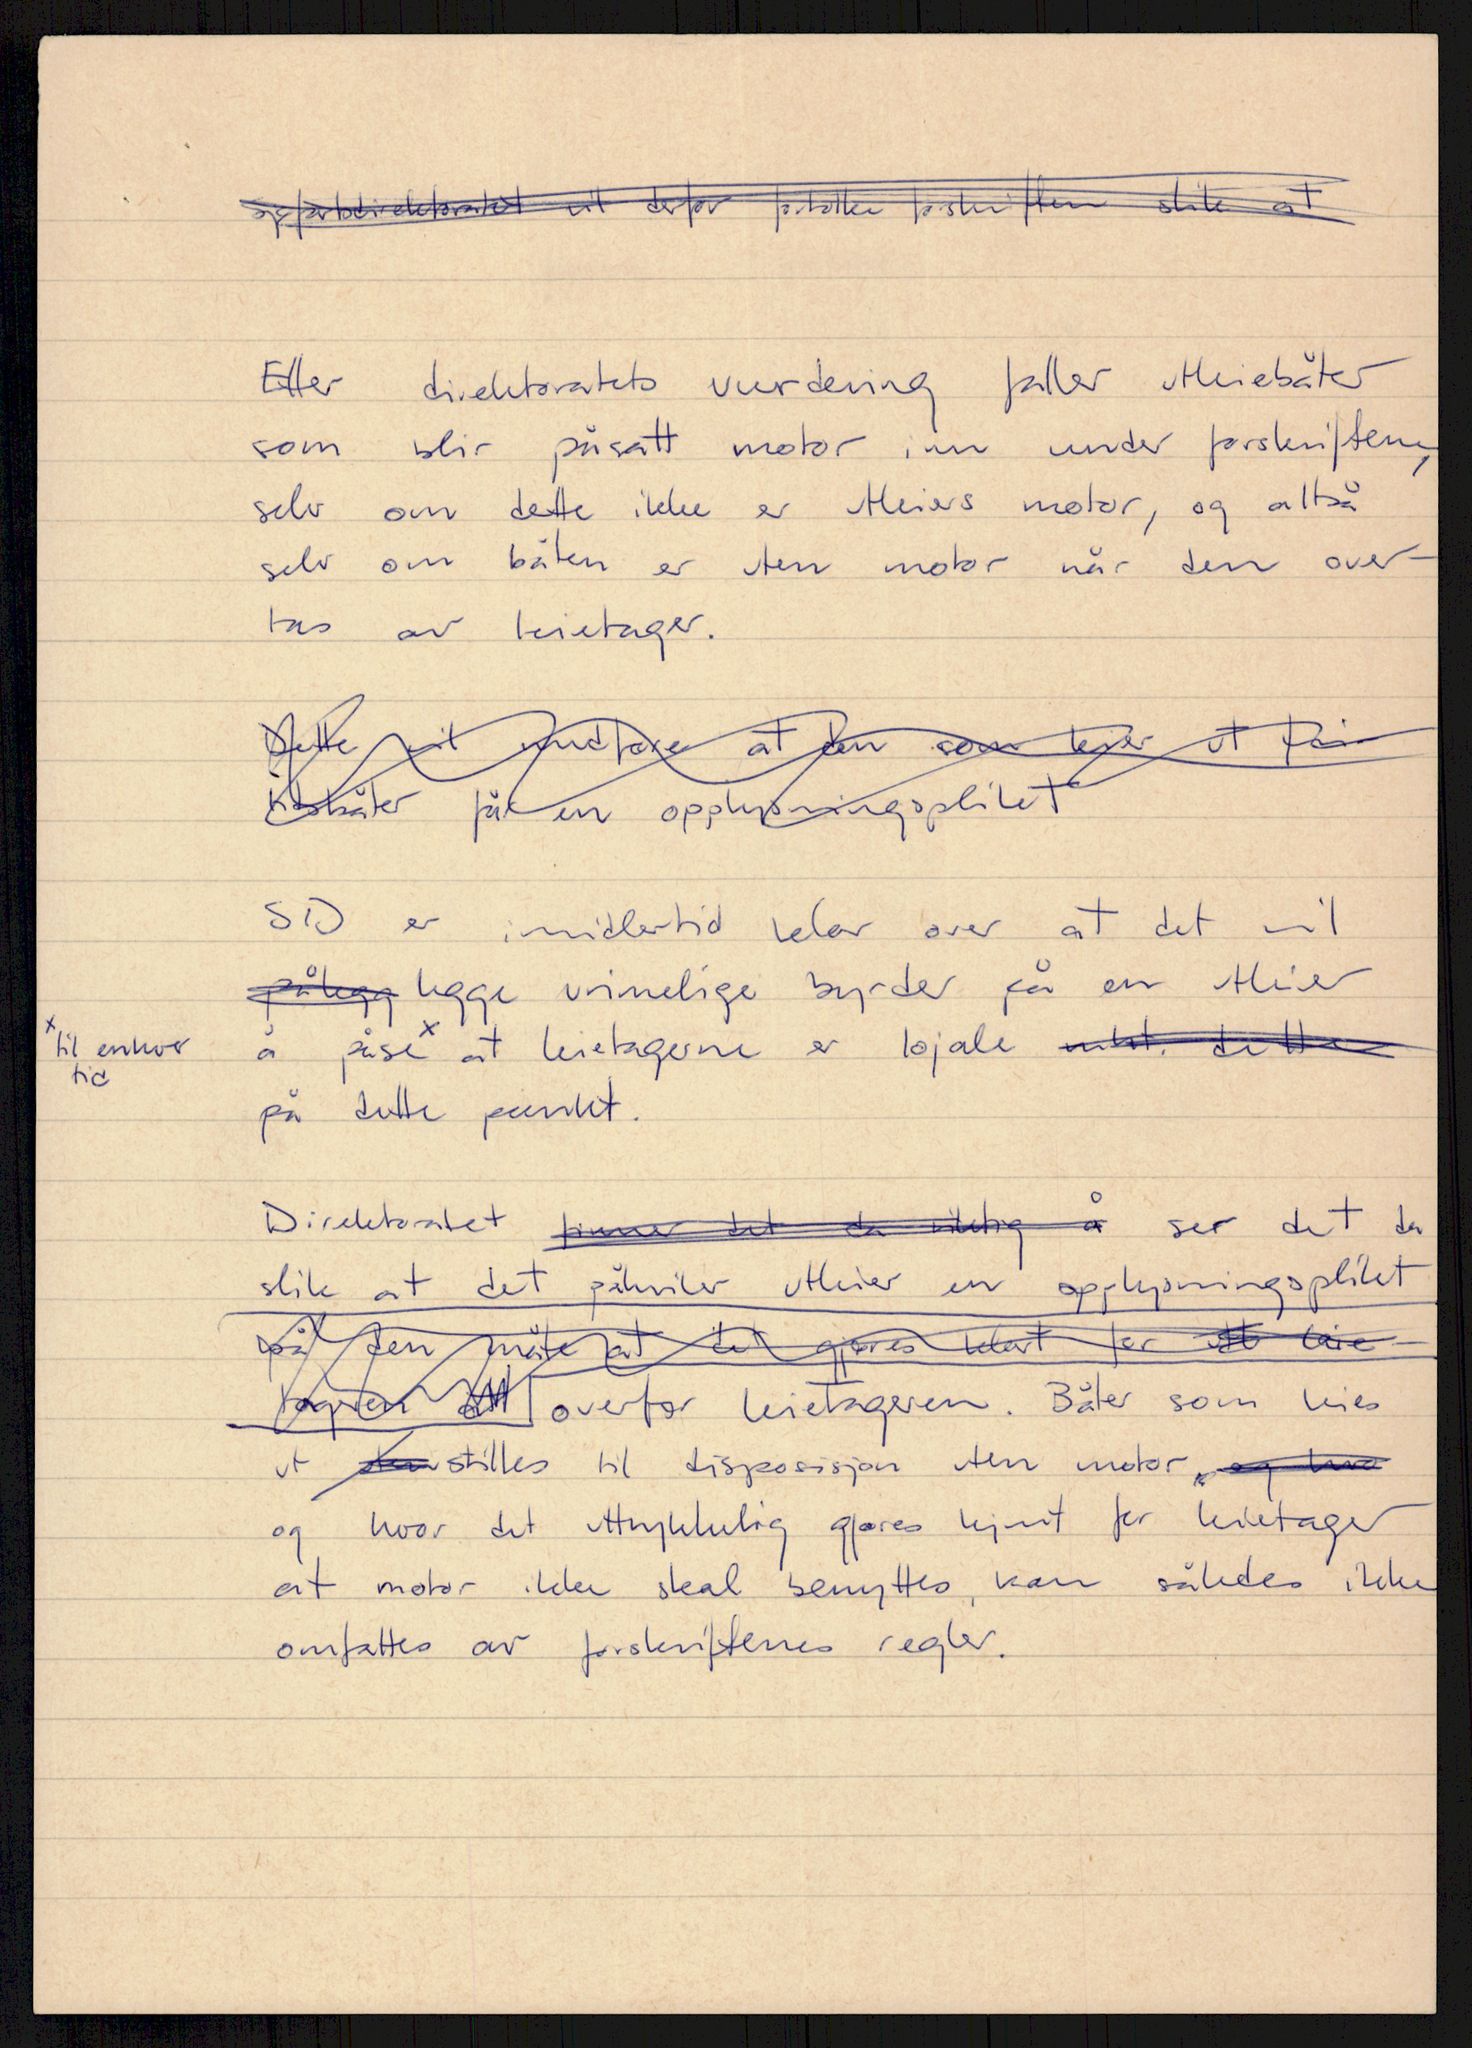 Sjøfartsdirektoratet vil derfor fortolke forskriften slik at
Etter direktoratets vurdering faller utleiebåter
som blir påsatt motor inn under forskriftene,
selv om dette ikke er utleiers motor, og altså
selv om båten er uten motor når den over-
tas av leietager.
Dette vil medføre at den som leier ut fri-
tidsbåter får en opplysningsplikt
SD er imidlertid klar over at det vil
pålegg legge urimelige byrder på en utleier
x til enhver
tid
å påse x at leietagerne er lojale mht. dette
på dette punkt.
Direktoratet finner det da riktig å ser det da
slik at det påhviler utleier en opplysningsplikt
på den måte at det gjøres klart for leie-
tageren att overfor leietageren. Båter som leies
ut stilles til disposisjon uten motor, og hvo
og hvor det uttrykkelig gjøres kjent for leietager
at motor ikke skal benyttes, kan således ikke
omfattes av forskriftenes regler.